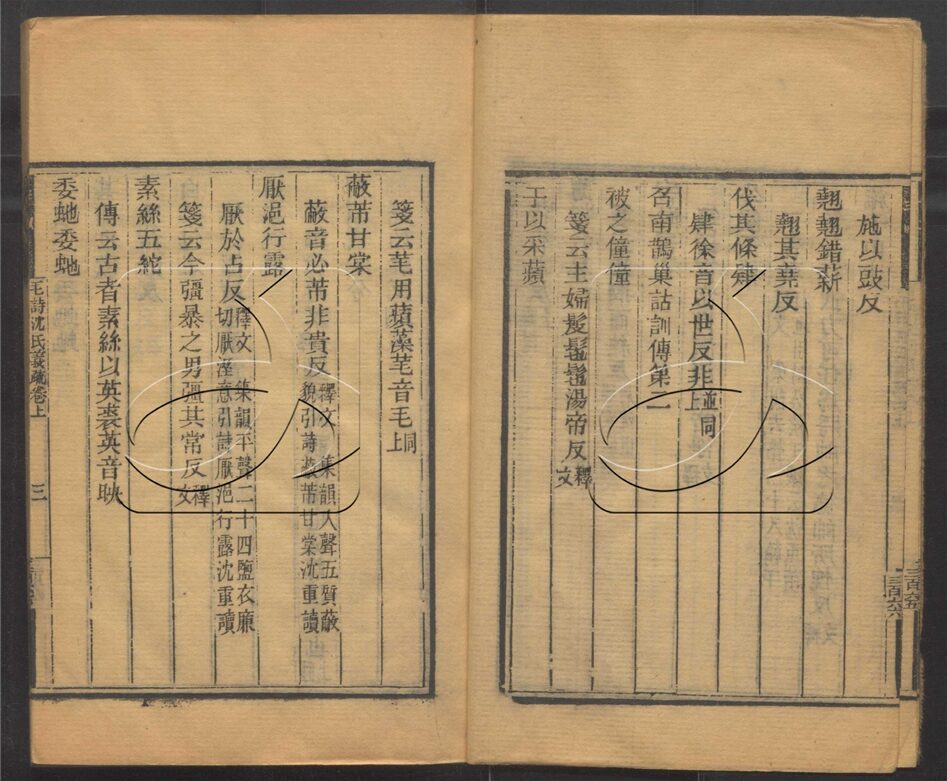 施以豉反
翹翹錯薪
翹其堯反
伐其條肄
肄徐音以世反非並同上
召南鵲巢詁訓傳第二
被之僮僮
箋云主婦髲鬄鬄湯帝反釋文
于以采蘋
三百六五
三百六六
箋云芼用蘋藻芼音毛同上
蔽芾甘棠
蔽音必芾非貴反釋文 集韻入聲五質蔽貌引詩蔽芾甘棠沈重讀
厭浥行露
厭於占反釋文 集韻平聲二十四鹽衣廉切厭浥意引詩厭浥行露沈重讀
箋云今彊暴之男彊其常反釋文
素絲五紽
傳云古者素絲以英裘英音映
委虵委虵
毛詩沈氏義疏卷上
三